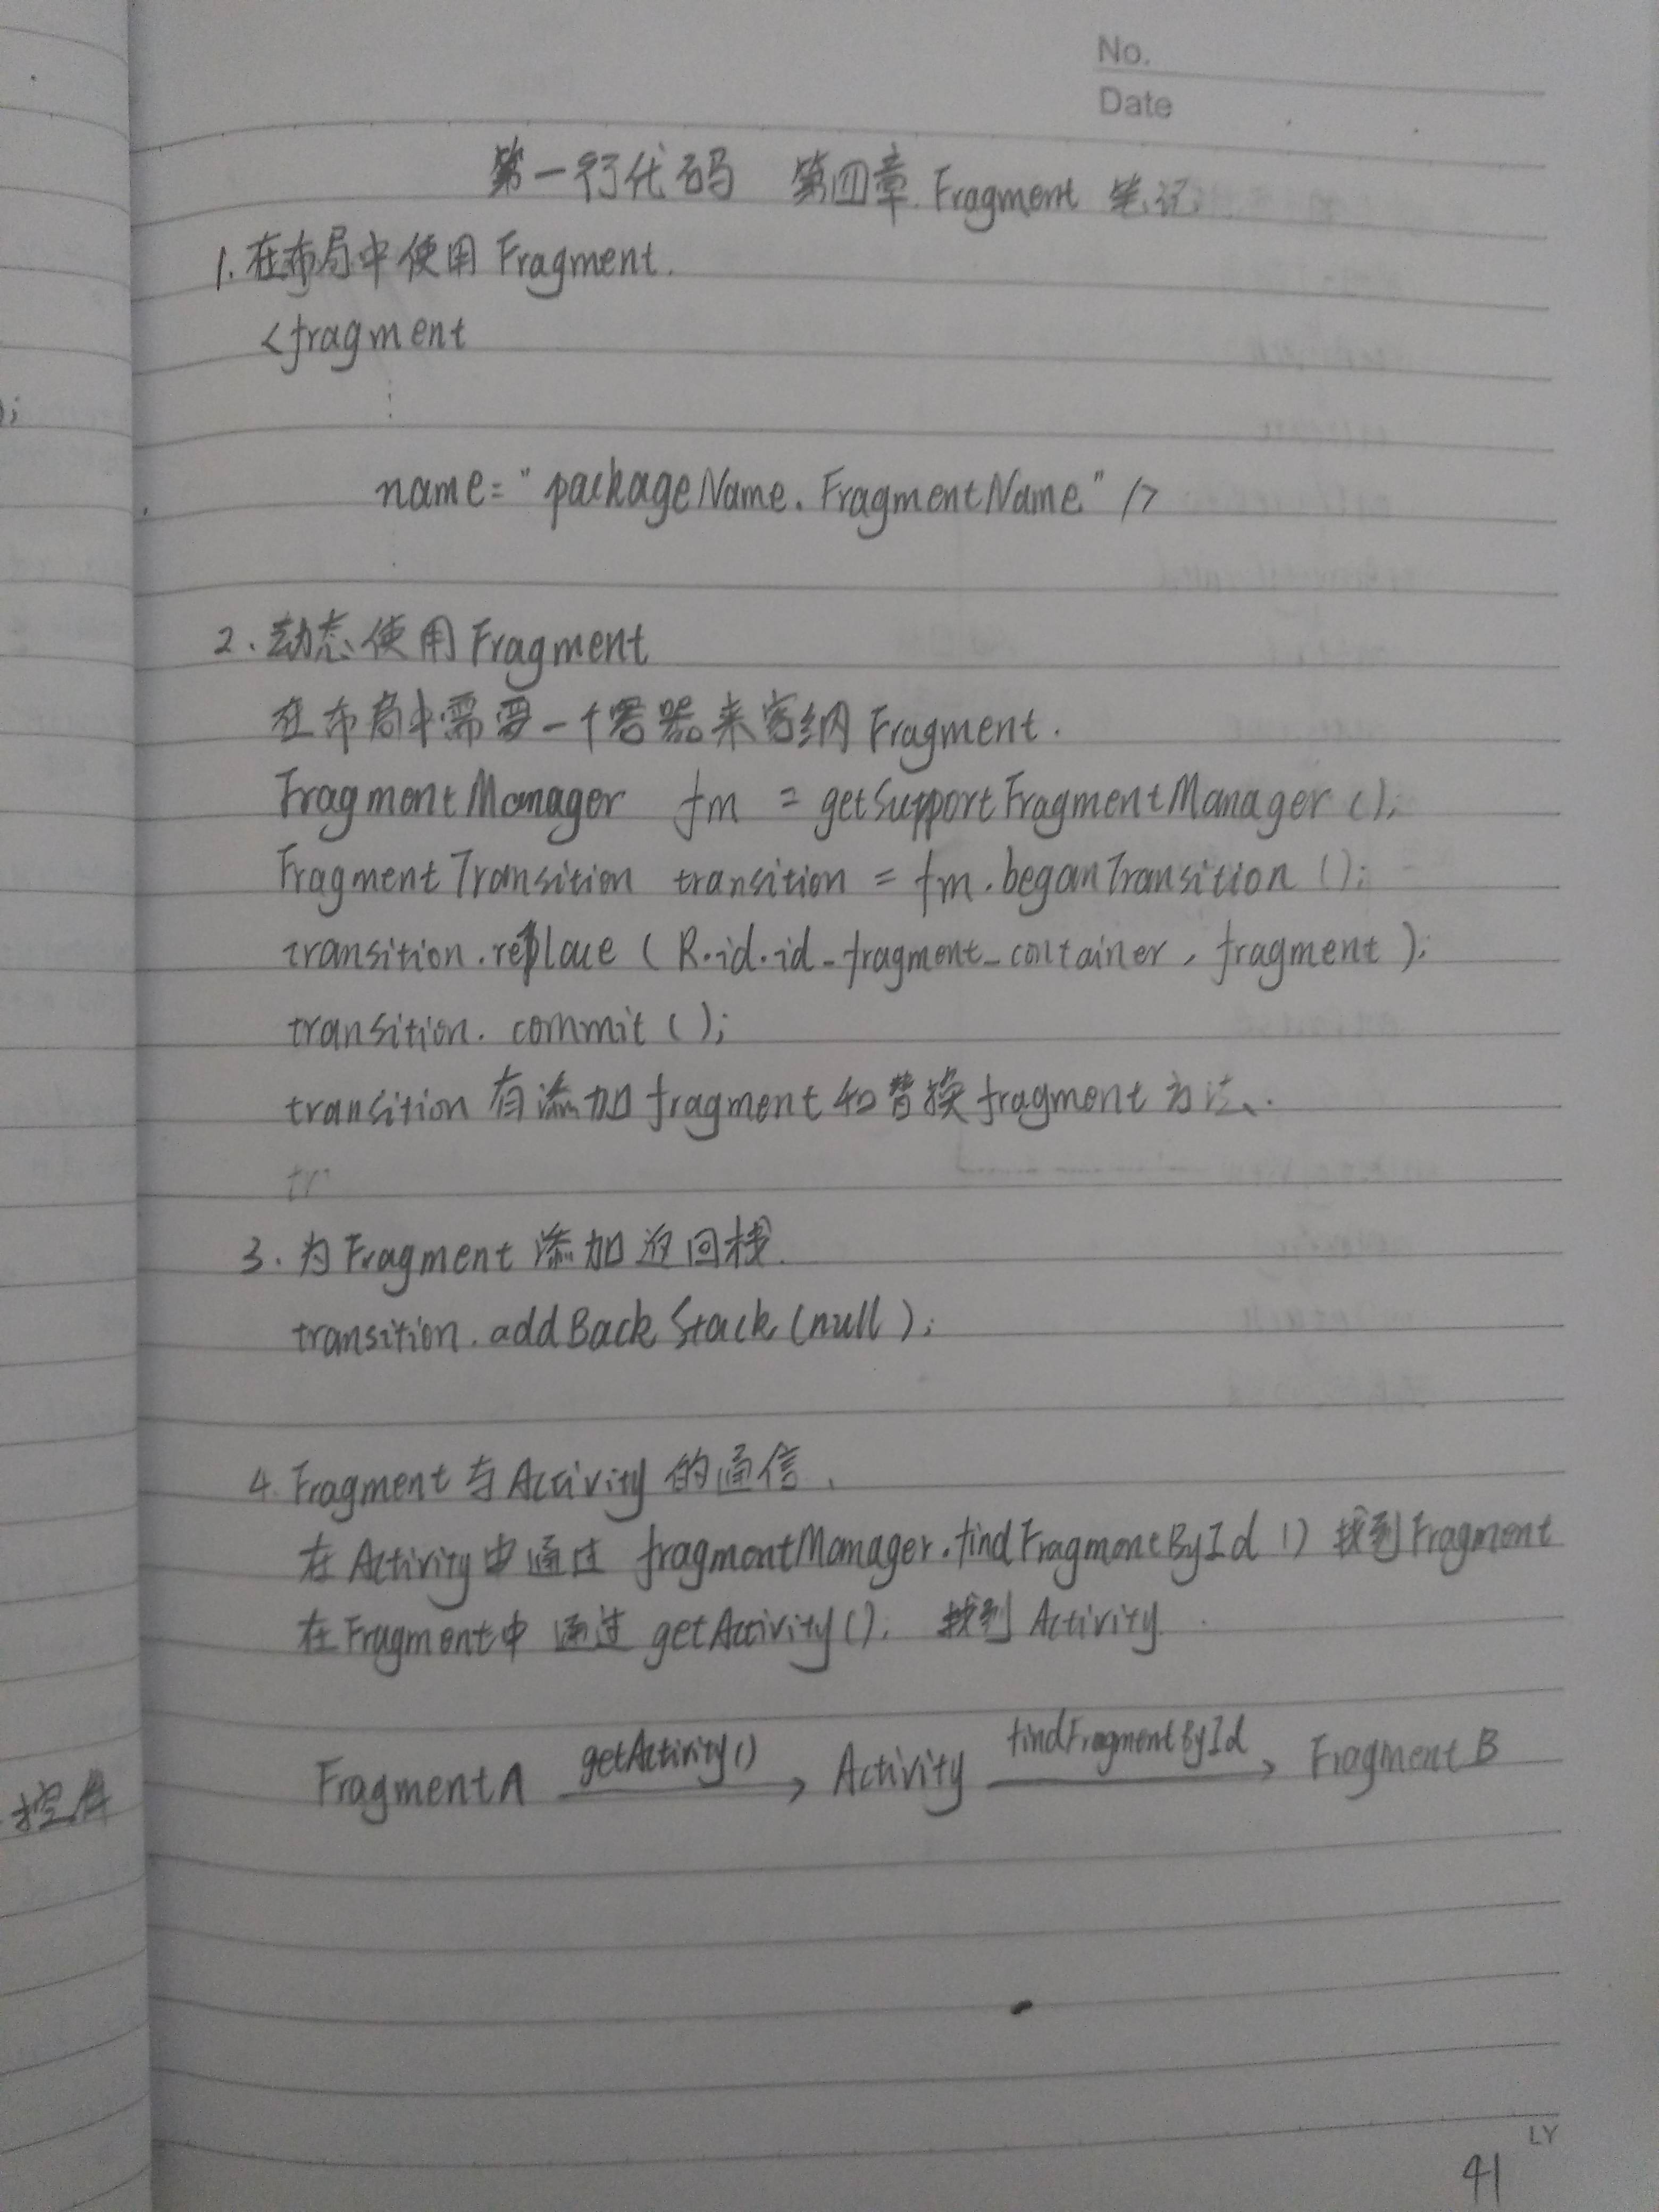 No.
Date
第一行代码 第四章 Fragment 笔记
1. 在布局中使用 Fragment.
<fragment
⋮
name="packageName.FragmentName" />
2. 动态使用 Fragment
在布局中需要一个容器来容纳 Fragment.
FragmentManager fm = getSupportFragmentManager();
FragmentTransition transition = fm.beganTransition();
transition.replace (R.id.id_fragment_container, fragment);
transition. commit ();
transition 有添加 fragment 和替换 fragment 方法.
tr
3. 为 Fragment 添加返回栈.
transition.addBackStack(null);
4. Fragment 与 Activity 的通信.
在 Activity 中通过 fragmentManager.findFragmentById() 找到 Fragment
在 Fragment 中 通过 getActivity(). 找到 Activity.
Fragment A getActivity() → Activity findFragmentById → Fragment B
);
LY
41